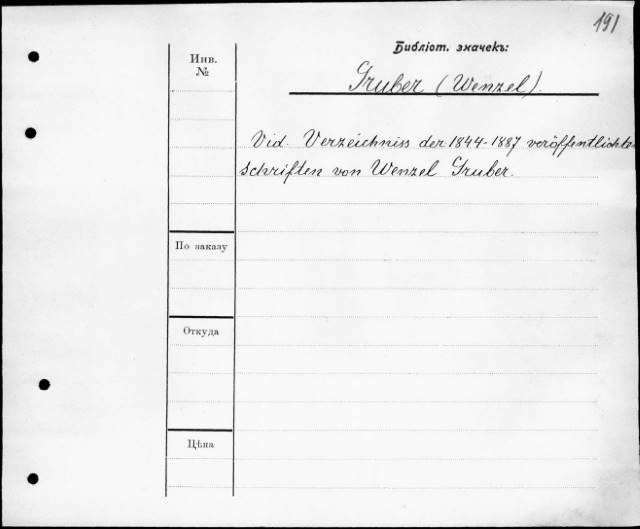 191
Библіот. значекъ:
Инв.
№
Gruber (Wenzel).
Vid. Verzeichniss der 1844-1887 veröffentlichten
schriften von Wenzel Gruber.
По заказу
Откуда
Цѣна